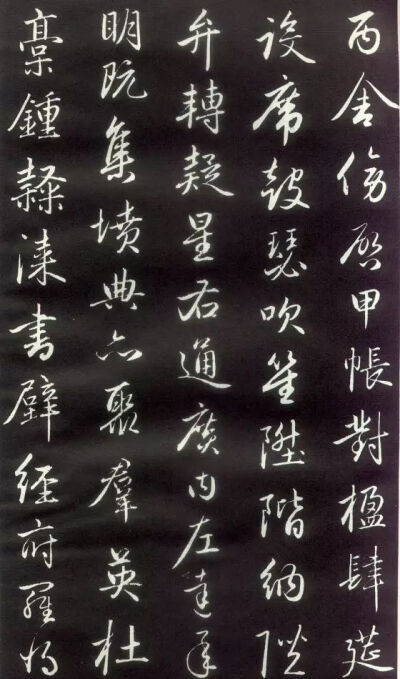 丙舍傍啓甲帳對楹肆筵
設席鼓瑟吹笙陞階納陛
弁轉疑星右通廣內左達承
明既集墳典亦聚羣英杜
槀鍾隸漆書壁經府羅將